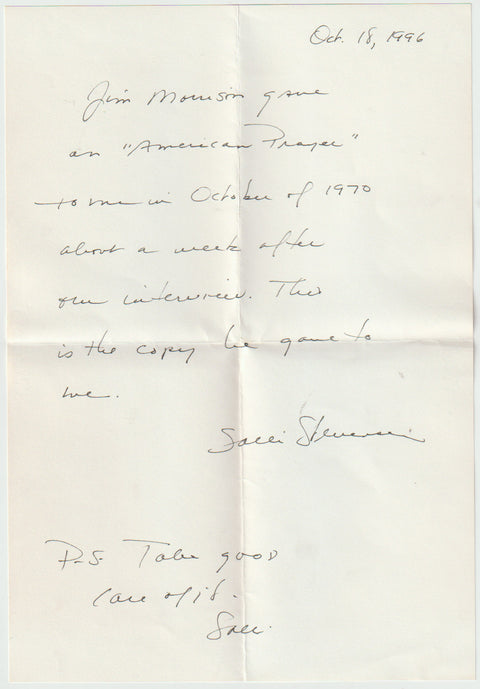 Oct. 18, 1996
Jim Morrison gave
an "American Prayer"
to me in October of 1970
about a week after
our interview. This
is the copy he gave to
me.
Salli Stevenson
P.S. Take good
care of it.
Salli